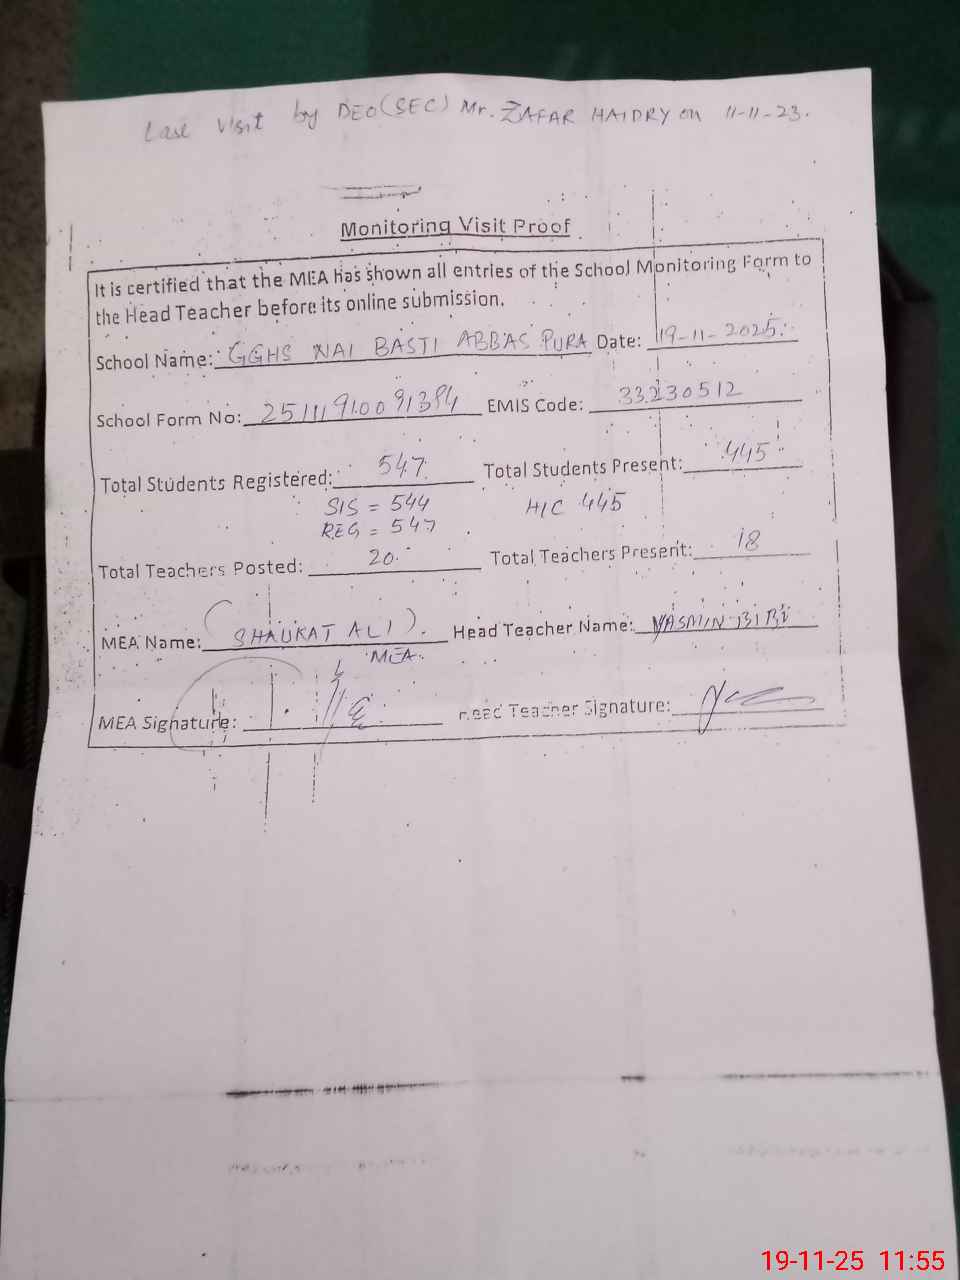 Last visit by DEO(SEC) Mr. ZAFAR HAIDRY on 11-11-23.
Monitoring Visit Proof
It is certified that the MEA has shown all entries of the School Monitoring Form to
the Head Teacher before its online submission.
School Name: GGHS NAI BASTI ABBAS PURA Date: 19-11-2025.
School Form No: EMIS Code: 33230512
Total Students Registered: 547 Total Students Present: 445
SIS = 544 H/C 445
REG = 547
Total Teachers Posted: 20 Total Teachers Present: 18
MEA Name: (SHAUKAT ALI). Head Teacher Name: YASMIN BIBI
MEA.
MEA Signature: Head Teacher Signature:
19-11-25 11:55